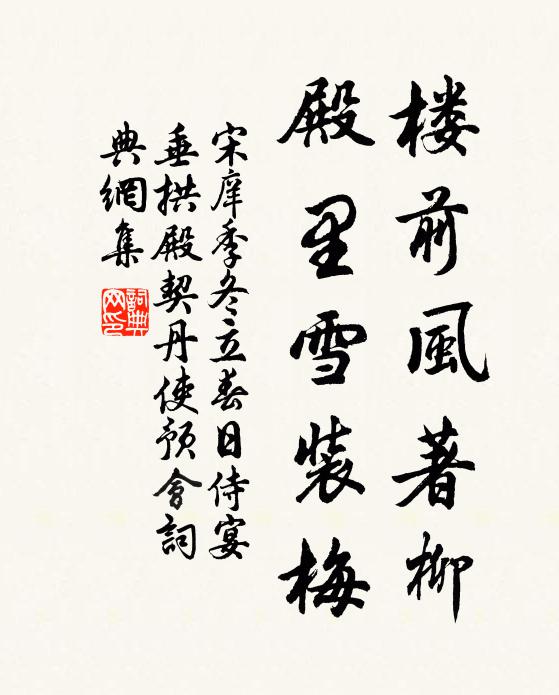 楼前風著柳
殿里雪装梅
宋庠季冬立春日侍宴
垂拱殿契丹使預會詞
典網集
詞典网印